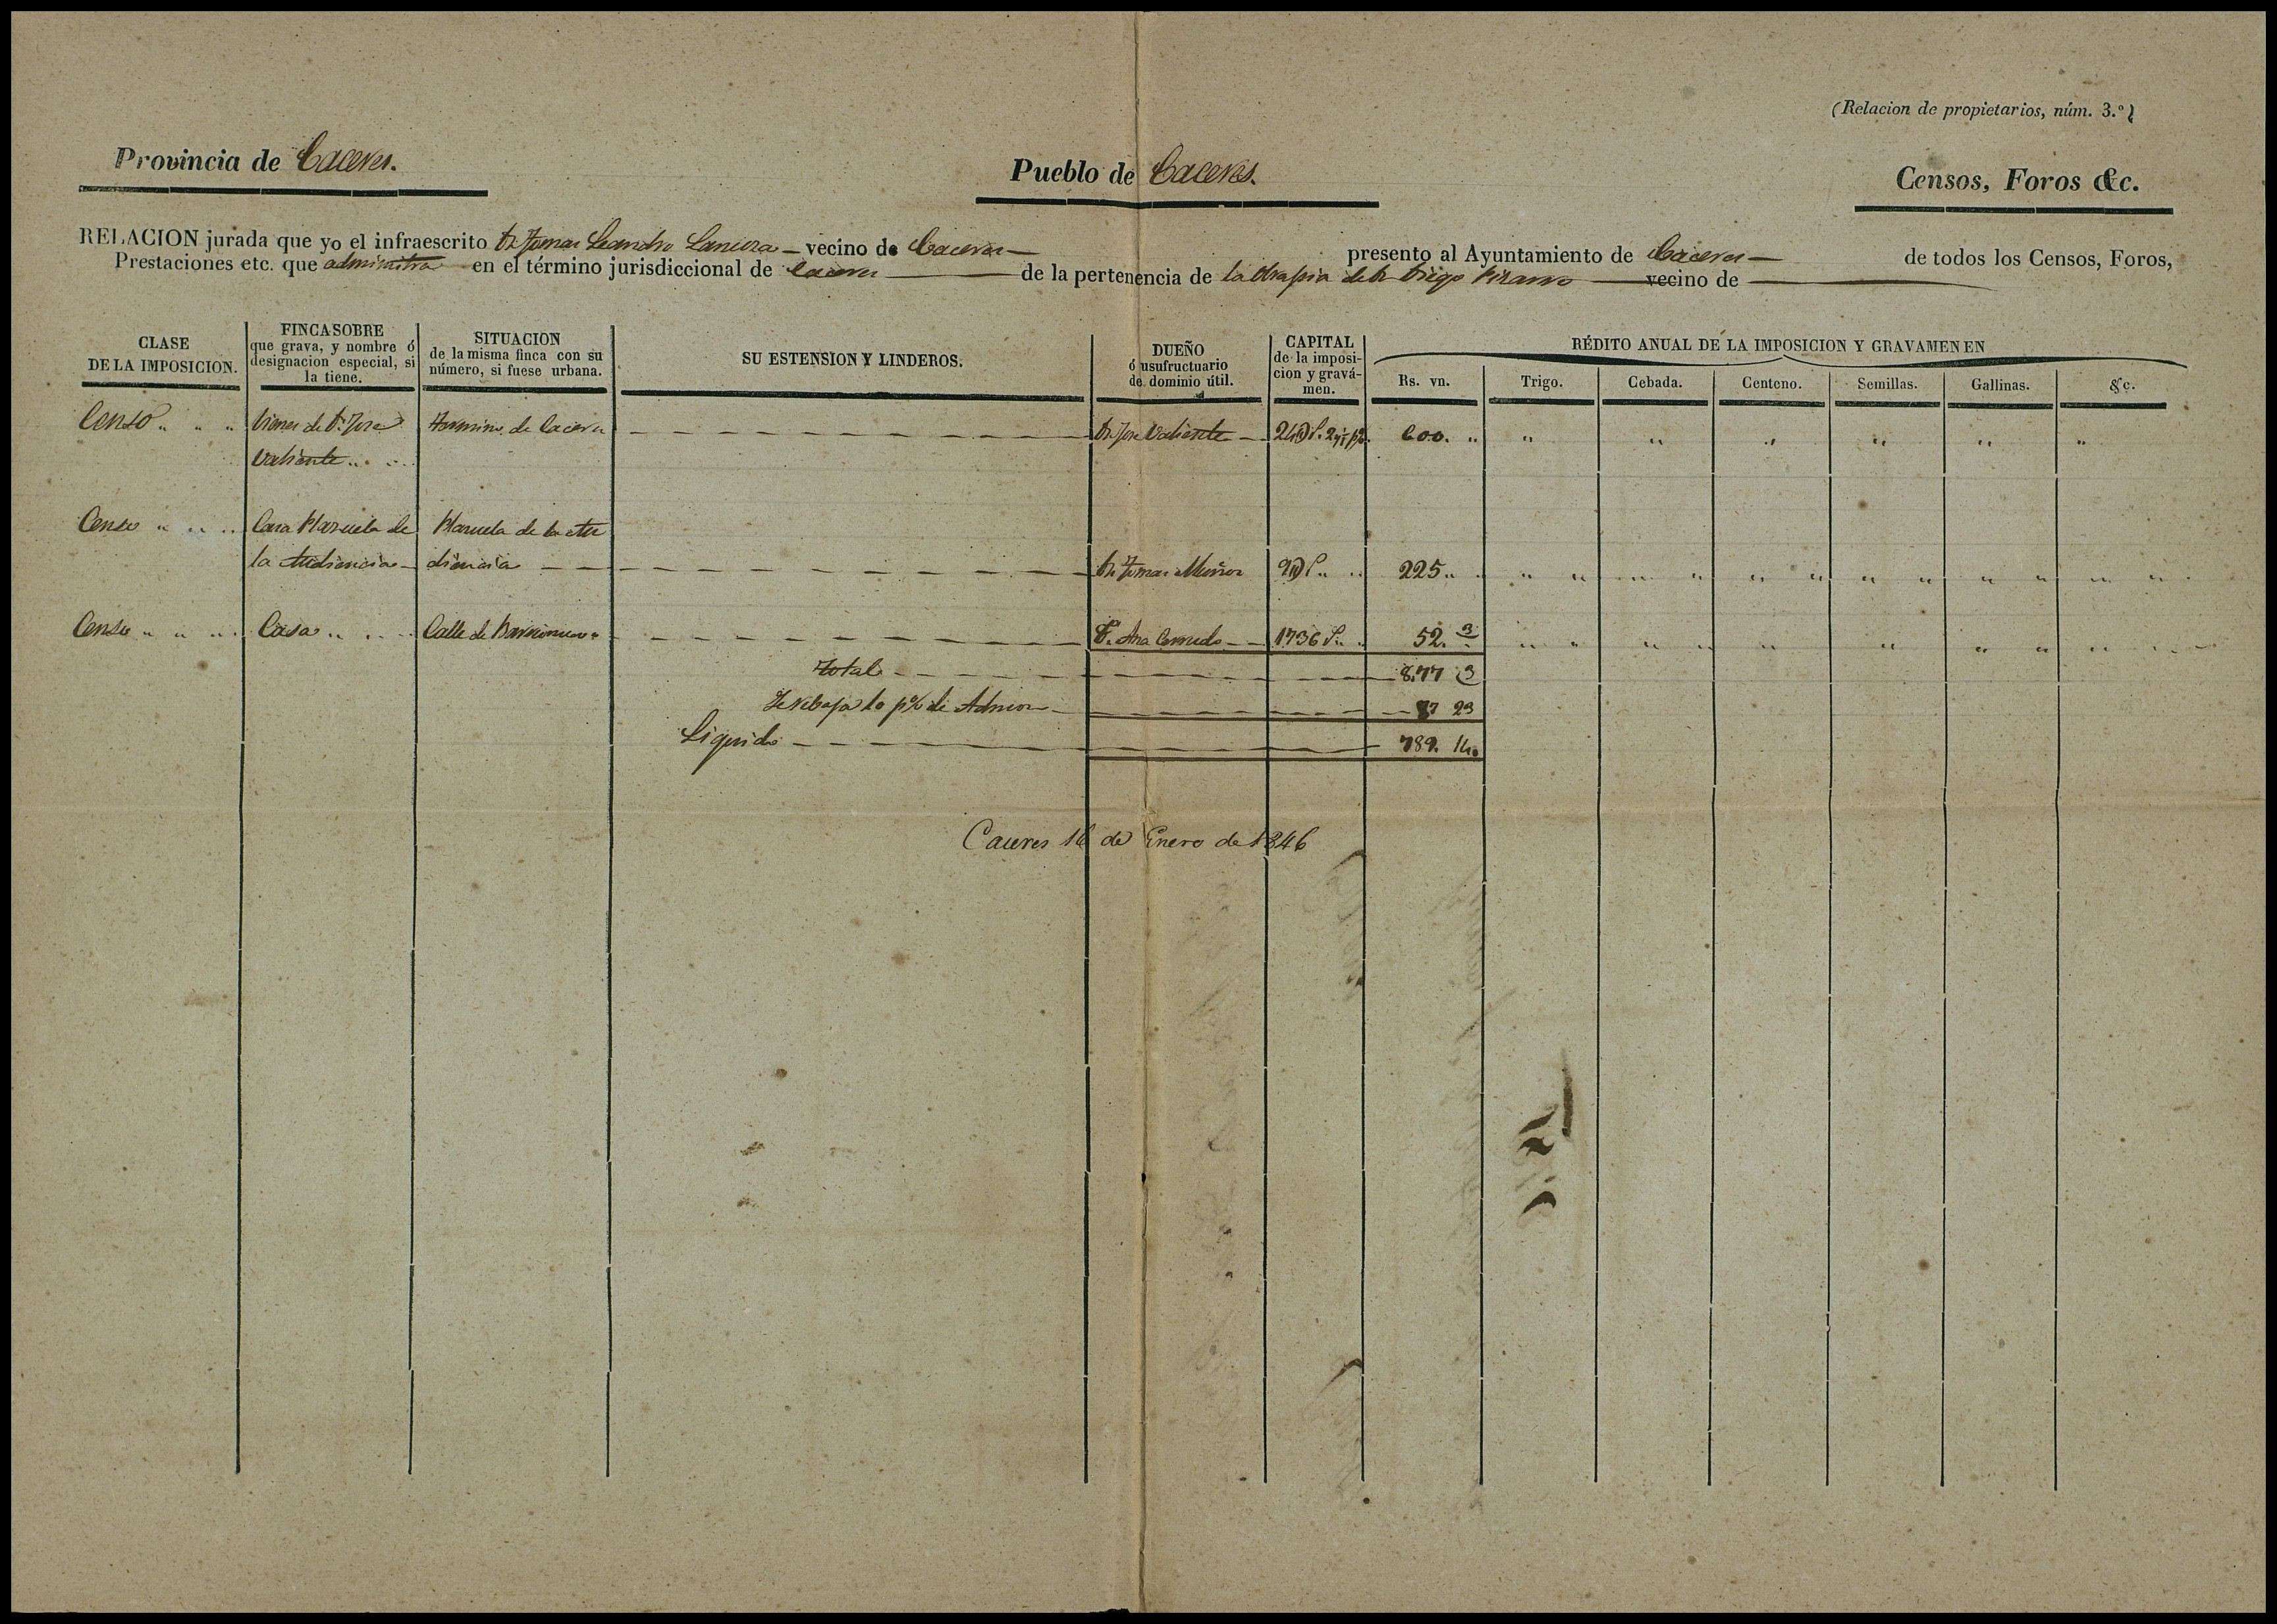 (Relacion de propietarios, núm. 3.º)
Provincia de Caceres.
Pueblo de Caceres.
Censos, Foros &c.
RELACION jurada que yo el infraescrito Dn. Tomas Leandro vecino de Caceres presento al Ayuntamiento de Caceres de todos los Censos, Foros,
Prestaciones etc. que administra en el término jurisdiccional de Caceres de la pertenencia de la Obra pia de Dn. Diego Pizarro vecino de
CLASE
DE LA IMPOSICION.
FINCA SOBRE
que grava, y nombre ó
designacion especial, si
la tiene.
SITUACION
de la misma finca con su
número, si fuese urbana.
SU ESTENSION Y LINDEROS.
DUEÑO
ó usufructuario
de dominio útil.
CAPITAL
de la imposi-
cion y gravá-
men.
RÉDITO ANUAL DE LA IMPOSICION Y GRAVAMEN EN
Rs. vn. Trigo. Cebada. Centeno. Semillas. Gallinas. &c.
Censo " " " bienes de Dn. Jose Termino de Caceres Dn. Jose Valiente 600. " " " " " " "
Valiente
Censo " " " Casa Plazuela de Plazuela de la Au
la Audiencia diencia Dn. Tomas Muñoz 225 " "
Censo " " " Casa " " Calle de Barrionuevo Da. Ana 1736 52. 3
Total 877 3
Se rebaja 10 p% de Admon 87 23
Liquido 789. 14.
Caceres 16 de Enero de 1846